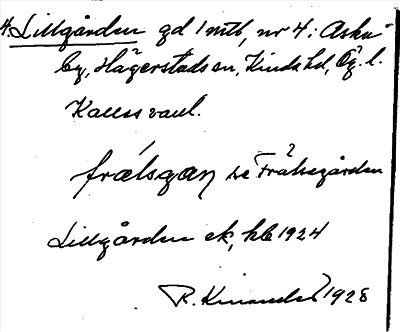 4. Lillgården gd 1 mtl, nr 4 i Aska
by, Hägerstads sn, Kinda hd, Ög. l.
Kallas vanl.
frælsgaṇ se Frälsegården
Lillgården ek, kb 1924
R. Kinander 1928